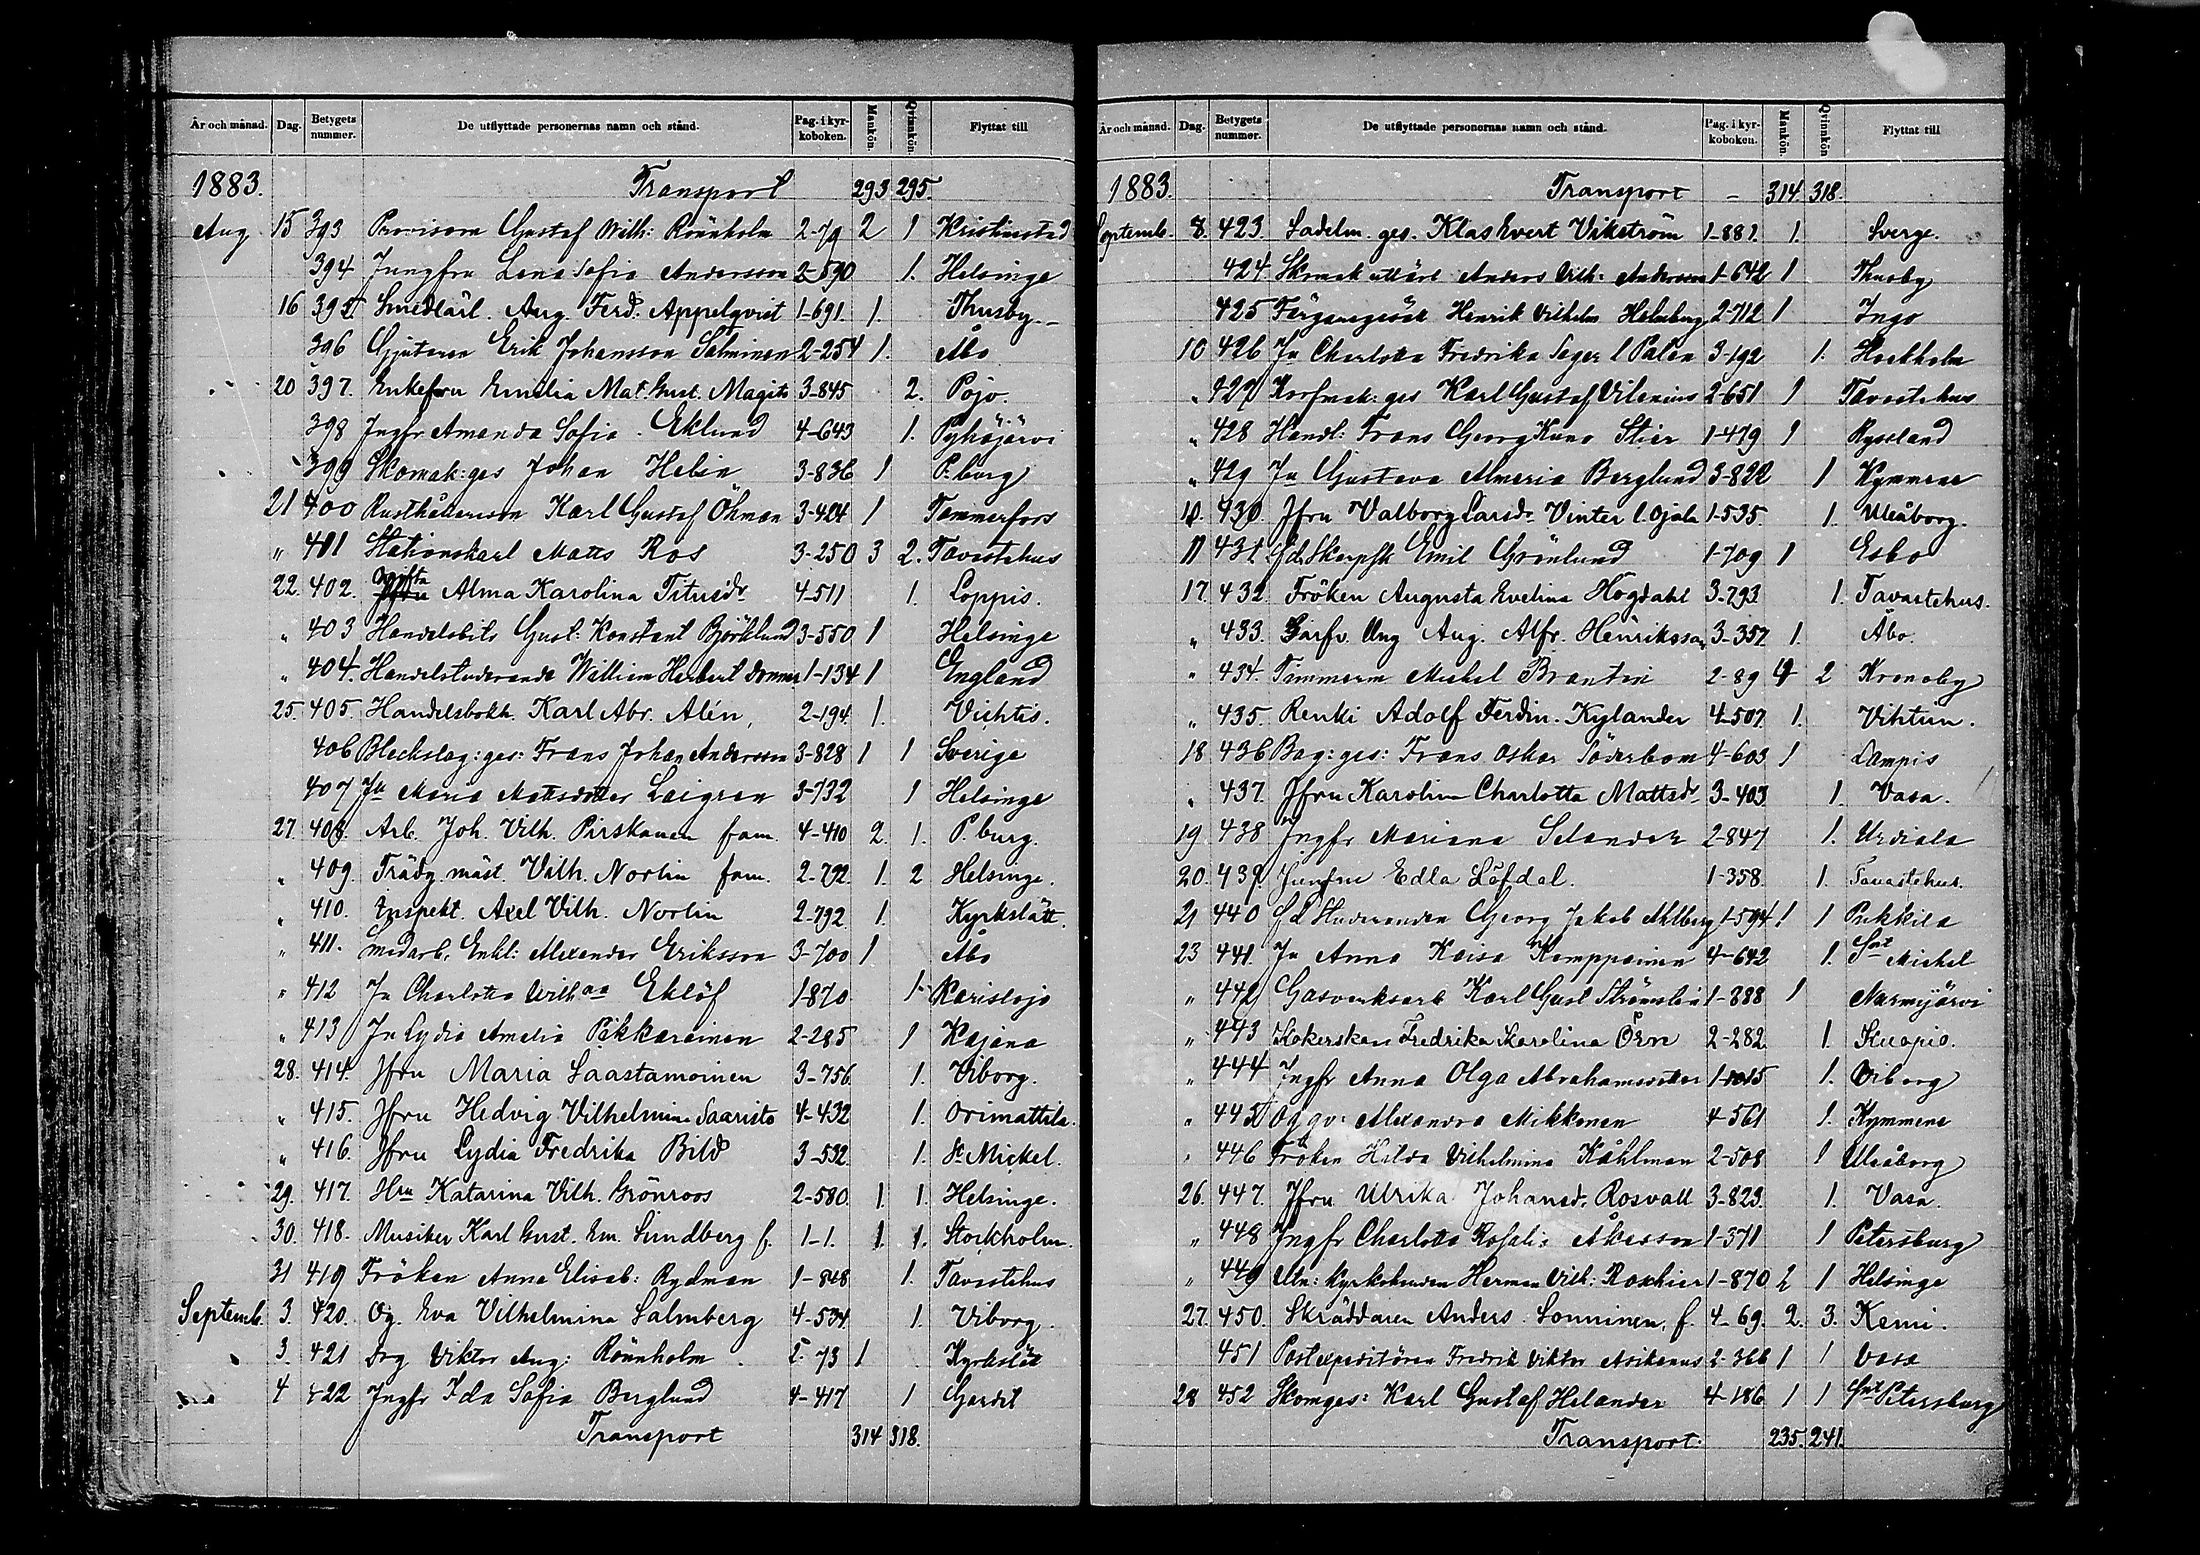 År och månad. Dag. Betygets nummer. De utflyttade personernas namn och stånd. Pag. i kyrkoboken. Mankön. Qvinnkön. Flyttat till
1883. Transport 293 295.
Aug 15 393 Provisorn Gustaf Wilh: Rönnholm 2-79 2 1 Kristinestad
394 Jungfru Lena Sofia Andersson 2-590 1. Helsinge
16 395 Smedlärl. Aug. Ferd. Appelqvist 1-691. 1. Thusby
396 Gjutaren Erik Johansson Salminen 2-254 1. Åbo
20 397. Enkefru Emilia Mat. Gust. Magits 3-845 2. Pojo.
398 Jngfr Amanda Sofia Eklund 4-643 1. Pyhäjärvi
399 Skomak:ges Johan Helin 3-836 1 P.burg
21 400 Rusthållareson Karl Gustaf Öhman 3-404 1 Tammerfors
" 401 Stationskarl Matts Ros 3-250 3 2. Tavastehus
22. 402. Ogifta Alma Karolina Titusdr 4-511 1. Loppis.
" 403 Handelsbits Gust: Konstant Björklund 3-550 1 Helsinge
" 404. Handelstuderande William Herbert Donner 1-134 1 England
25. 405. Handelsbokh. Karl Abr. Alén, 2-194. 1. Vichtis.
406 Bleckslag:ges: Frans Johan Andersson 3-828 1 1 Sverige
407 Ju Maria Mattsdotter Laigren 3-732 1 Helsinge
27. 408. Arb. Joh. Vilh. Pirskanen fam. 4-410 2. 1. P.burg.
" 409. Trädg.mäst. Vilh. Norlin fam. 2-792. 1. 2 Helsinge.
" 410. Inspekt. Axel Vilh. Norlin 2-792. 1. Kyrkslätt.
" 411. Smedarb. Enkl: Alexander Eriksson 3-700 1 Åbo
" 412 Ju Charlotta Wilhna Eklöf 1-870 1 Karislojo
" 413 Ju Lydia Amalia Pikkarainen 2-285 1 Kajana
28. 414. Jfru Maria Saastamoinen 3-756. 1. Viborg.
" 415. Jfru Hedvig Vilhelmina Saaristo 4-432 1. Orimattila.
" 416. Jfru Lydia Fredrika Bild 3-532. 1. St Mickel.
29. 417. Hru Katarina Vilh. Grönroos 2-580. 1. 1. Helsinge.
30. 418. Musiker Karl Gust. Em. Sundberg f. 1-1. 1. 1. Stockholm.
31 419 Fröken Anna Elisab: Rydman 1-848 1. Tavastehus
Septemb. 3. 420. Og. Eva Vilhelmina Salmberg 4-534. 1. Viborg.
3. 421 Drg Viktor Aug: Rönnholm 2-73 1 Kyrkslät
4 422 Jngfr Ida Sofia Berglund 4-417 1
Transport 314 318.
År och månad. Dag. Betygets nummer. De utflyttade personernas namn och stånd. Pag. i kyrkoboken. Mankön. Qvinnkön Flyttat till
1883. Transport - 314. 318.
Septemb. 8. 423. Sadelm. ges. Klas Evert Vikström 1-881. 1. Sverge.
424 Anders Vilh: Andersson 1-642 1 Thusby
425 Henrik Vilhelm Holmberg 2-712 1 Ingo
10 426 Ju Charlotta Fredrika Seger l Palén 3-192 1. Stockholm
" 427 Korfmak: ges Karl Gustaf Vilenius 2-651 1 Tavastehus
" 428 Handl: Frans Georg Kuno Stier 1-479 1 Ryssland
" 429 Ju Gustava Almeria Berglund 3-822 1 Kymmene
10. 430. Jfru Valborg Larsdr Vinter l. Ojala 1-535 1. Uleåborg.
11 431. f.d. Skarpsk Emil Grönlund 1-709 1 Esbo
17. 432. Fröken Augusta Evelina Högdahl 3-793. 1. Tavastehus.
" 433. Garfv. Ung Aug. Alfr. Henriksson 3-357 1. Åbo.
" 434. Timmerm Mickel Brantin 2-89 4 2 Kronoby
" 435. Renki Adolf Ferdin. Kylander 4-507. 1. Vihtiin.
18 436 Bag:ges: Frans Oskar Söderbom 4-603 1 Lampis
" 437. Jfru Karolina Charlotta Mattsdr 3-403. 1. Vasa.
19 438 Jngfr Mariana Selander 2-847 1. Urdiala
20. 439. Junfru Edla Löfdal. 1-358. 1. Tavastehus.
21 440 f d Studeranden Georg Jakob Ahlberg 1-594 1 1 Pukkila
23 441. Ju Anna Kaisa Kamppainen 4-642 1. Snt Mickel
" 442 Gasverksarb Karl Gust Strömsten 1-388 1 Nurmijärvi
" 443 Kokerskan Fredrika Karolina Örn 2-282. 1. Kuopio.
" 444 Jngfr Anna Olga Abrahamsdotter 1-1015 1. Viborg
" 445 Og qv: Alexandra Mikkonen 4-561 1. Kymmene
" 446 Fröken Hilda Vilhelmina Kåhlman 2-508 1 Uleåborg
26. 447. Jfru Ulrika Johansd. Rosvall 3-823. 1. Vasa.
" 448 Jngfr Charlotta Rosalie Åkesson 1-371 1 Petersburg
" 449 Herman Vilh: Roschier 1-870 2 1 Helsinge
27. 450. Skräddaren Anders Sonninen, f. 4-69. 2. 3. Kemi.
451 Postexpeditören Fredrik Viktor Asikanus 2-366 1 1 Vasa
28 452 Skomges: Karl Gustaf Helander 4-186 1 1 Snt Petersburg
Transport. 235. 241.